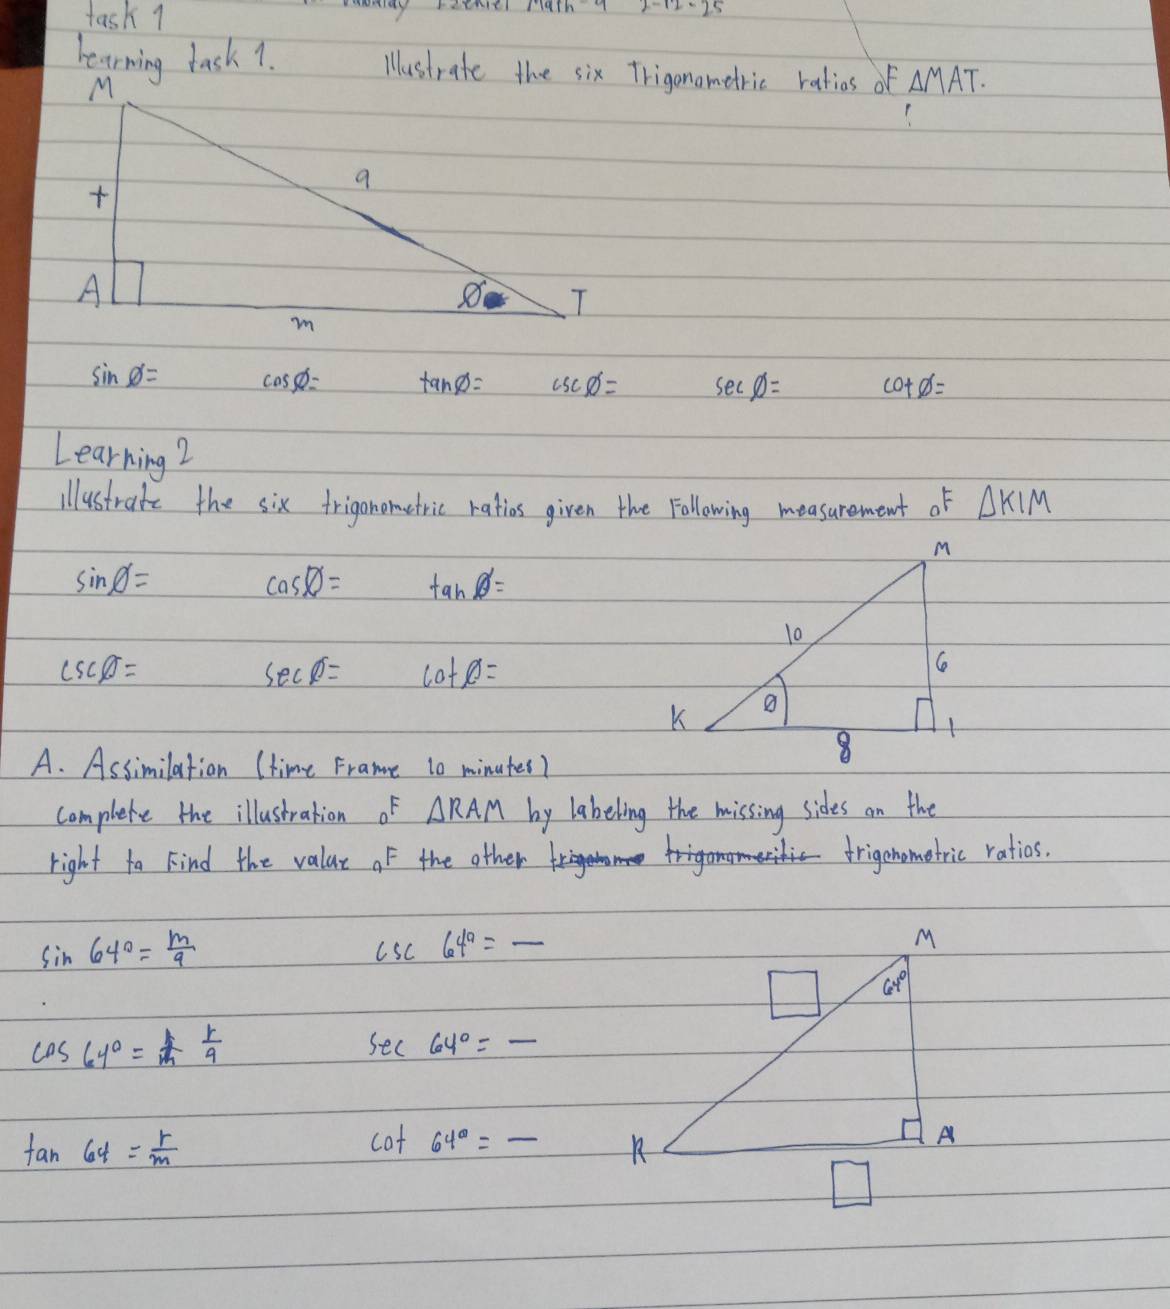 Ezekiel Math 9 2-12-25
task 1
Learning task 1. Illustrate the six Trigonometric ratios of ΔMAT.
!
M
t
a
A
Ø
T
m
sin Ø= cos Ø= tan Ø= csc Ø= sec Ø= cot Ø=
Learning 2
illustrate the six trigonometric ratios given the Following measurement of ΔKIM
M
sin Ø= cos Ø= tan Ø=
10
6
csc Ø= sec Ø= cot Ø=
K
Ø
I
8
A. Assimilation (time Frame 10 minutes)
complete the illustration of ΔRAM by labeling the missing sides on the
right to Find the value of the other trigonometric ratios.
M
64°
sin 64° = m/a csc 64° = —
cos 64° = r/a sec 64° = —
tan 64 = r/m cot 64° = —
R
A